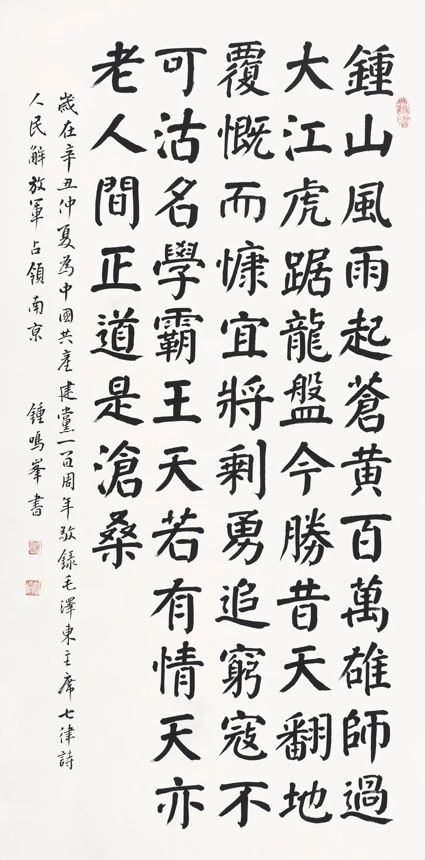 鍾山風雨起蒼黃百萬雄師過
大江虎踞龍盤今勝昔天翻地
覆慨而慷宜將剩勇追窮寇不
可沽名學霸王天若有情天亦
老人間正道是滄桑
歲在辛丑仲夏為中國共產建黨一百周年敬錄毛澤東主席七律詩
人民解放軍占領南京 鍾鳴峯書